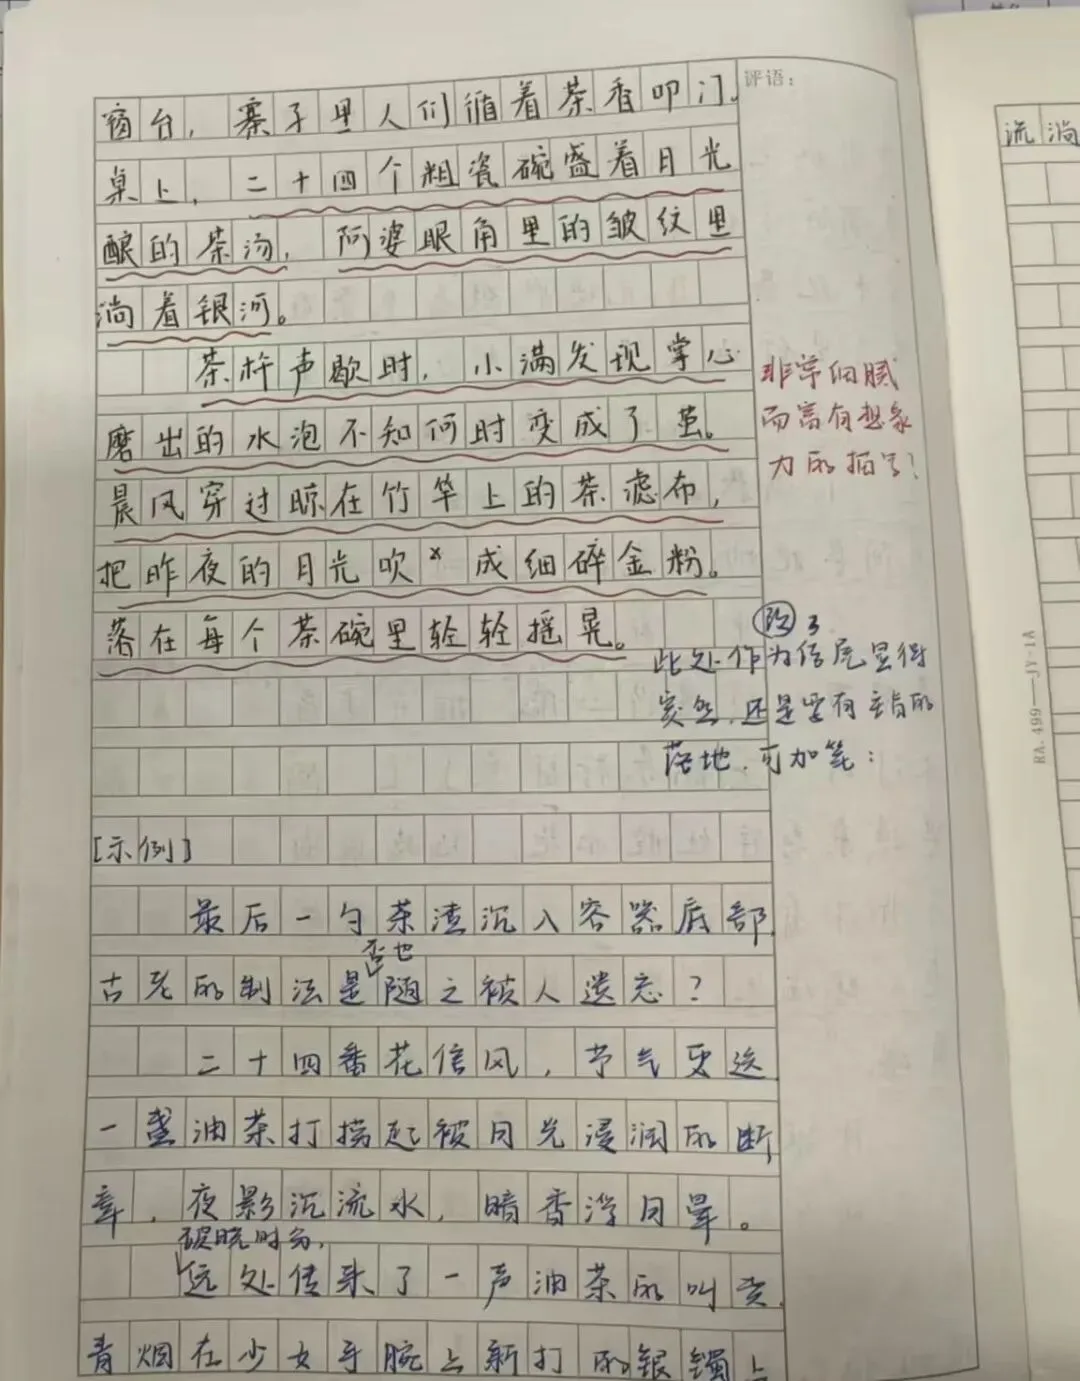 评语：
窗台，寨子里人们循着茶香叩门。
桌上，二十四个粗瓷碗盛着月光
酿的茶汤，阿婆眼角里的皱纹里
淌着银河。
茶杵声歇时，小满发现掌心
磨出的水泡不知何时变成了茧。
晨风穿过晾在竹竿上的茶滤布，
把昨夜的月光吹成细碎金粉。
落在每个茶碗里轻轻摇晃。
非常细腻
而富有想象
力的描写！
此处作为结尾显得
突然，还是要有主旨的
落地，可加笔：
[示例]
最后一勺茶渣沉入容器底部，
古老的制法是否也随之被人遗忘？
二十四番花信风，节气更迭
一盏油茶打捞起被月光浸润的断
章，夜影沉流水，暗香浮月晕。
破晓时分，远处传来了一声油茶的叫卖，
青烟在少女手腕上新打的银镯上
流淌
RA.499—JY·1A